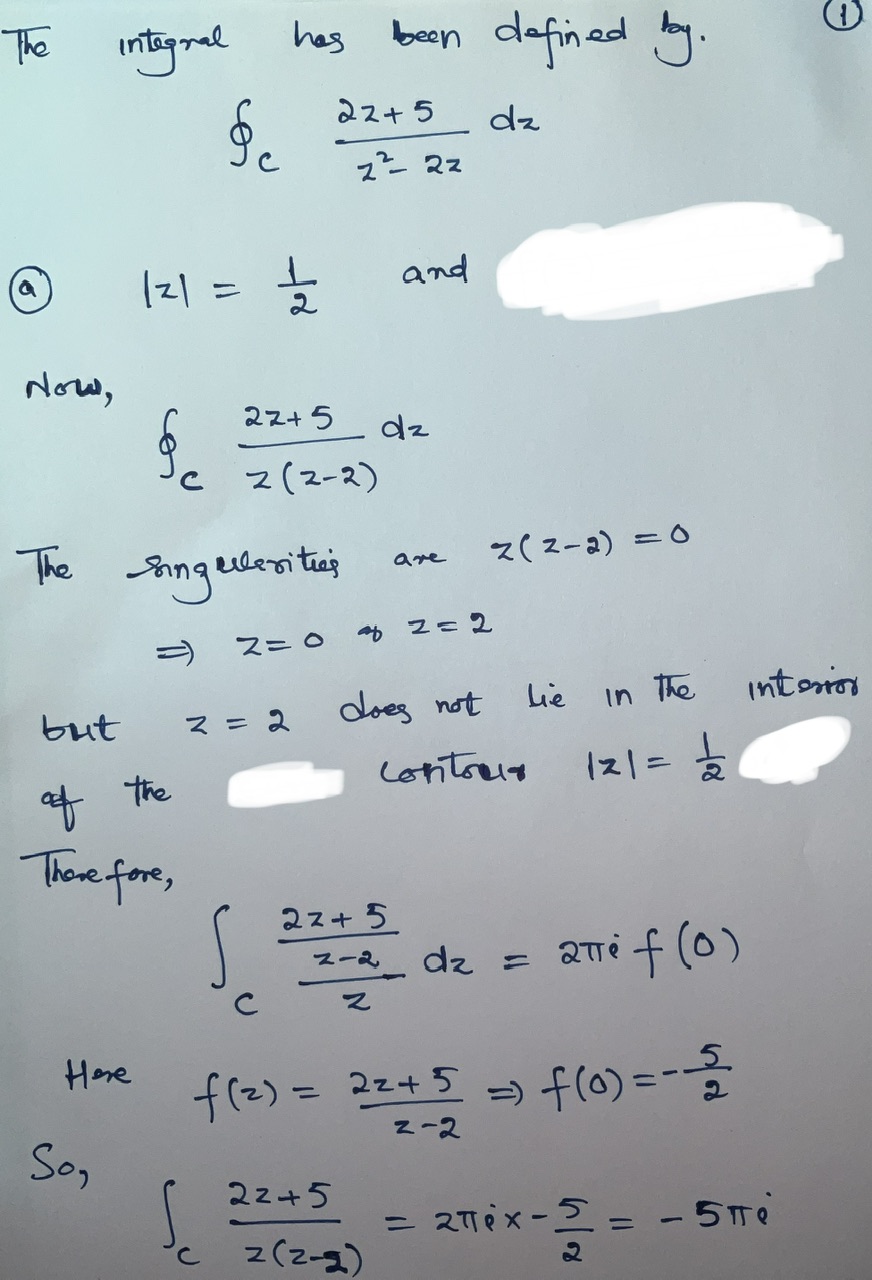 ①
The integral has been defined by.
∮_C (2z+5)/(z²-2z) dz
ⓐ |z| = 1/2 and
Now,
∮_C (2z+5)/(z(z-2)) dz
The singularities are z(z-2) = 0
⇒ z=0 z=2
but z = 2 does not lie in the interior
of the contour |z| = 1/2
Therefore,
∫_C ((2z+5)/(z-2))/z dz = 2πi f(0)
Here f(z) = (2z+5)/(z-2) ⇒ f(0) = -5/2
So,
∫_C (2z+5)/(z(z-2)) = 2πi × -5/2 = -5πi